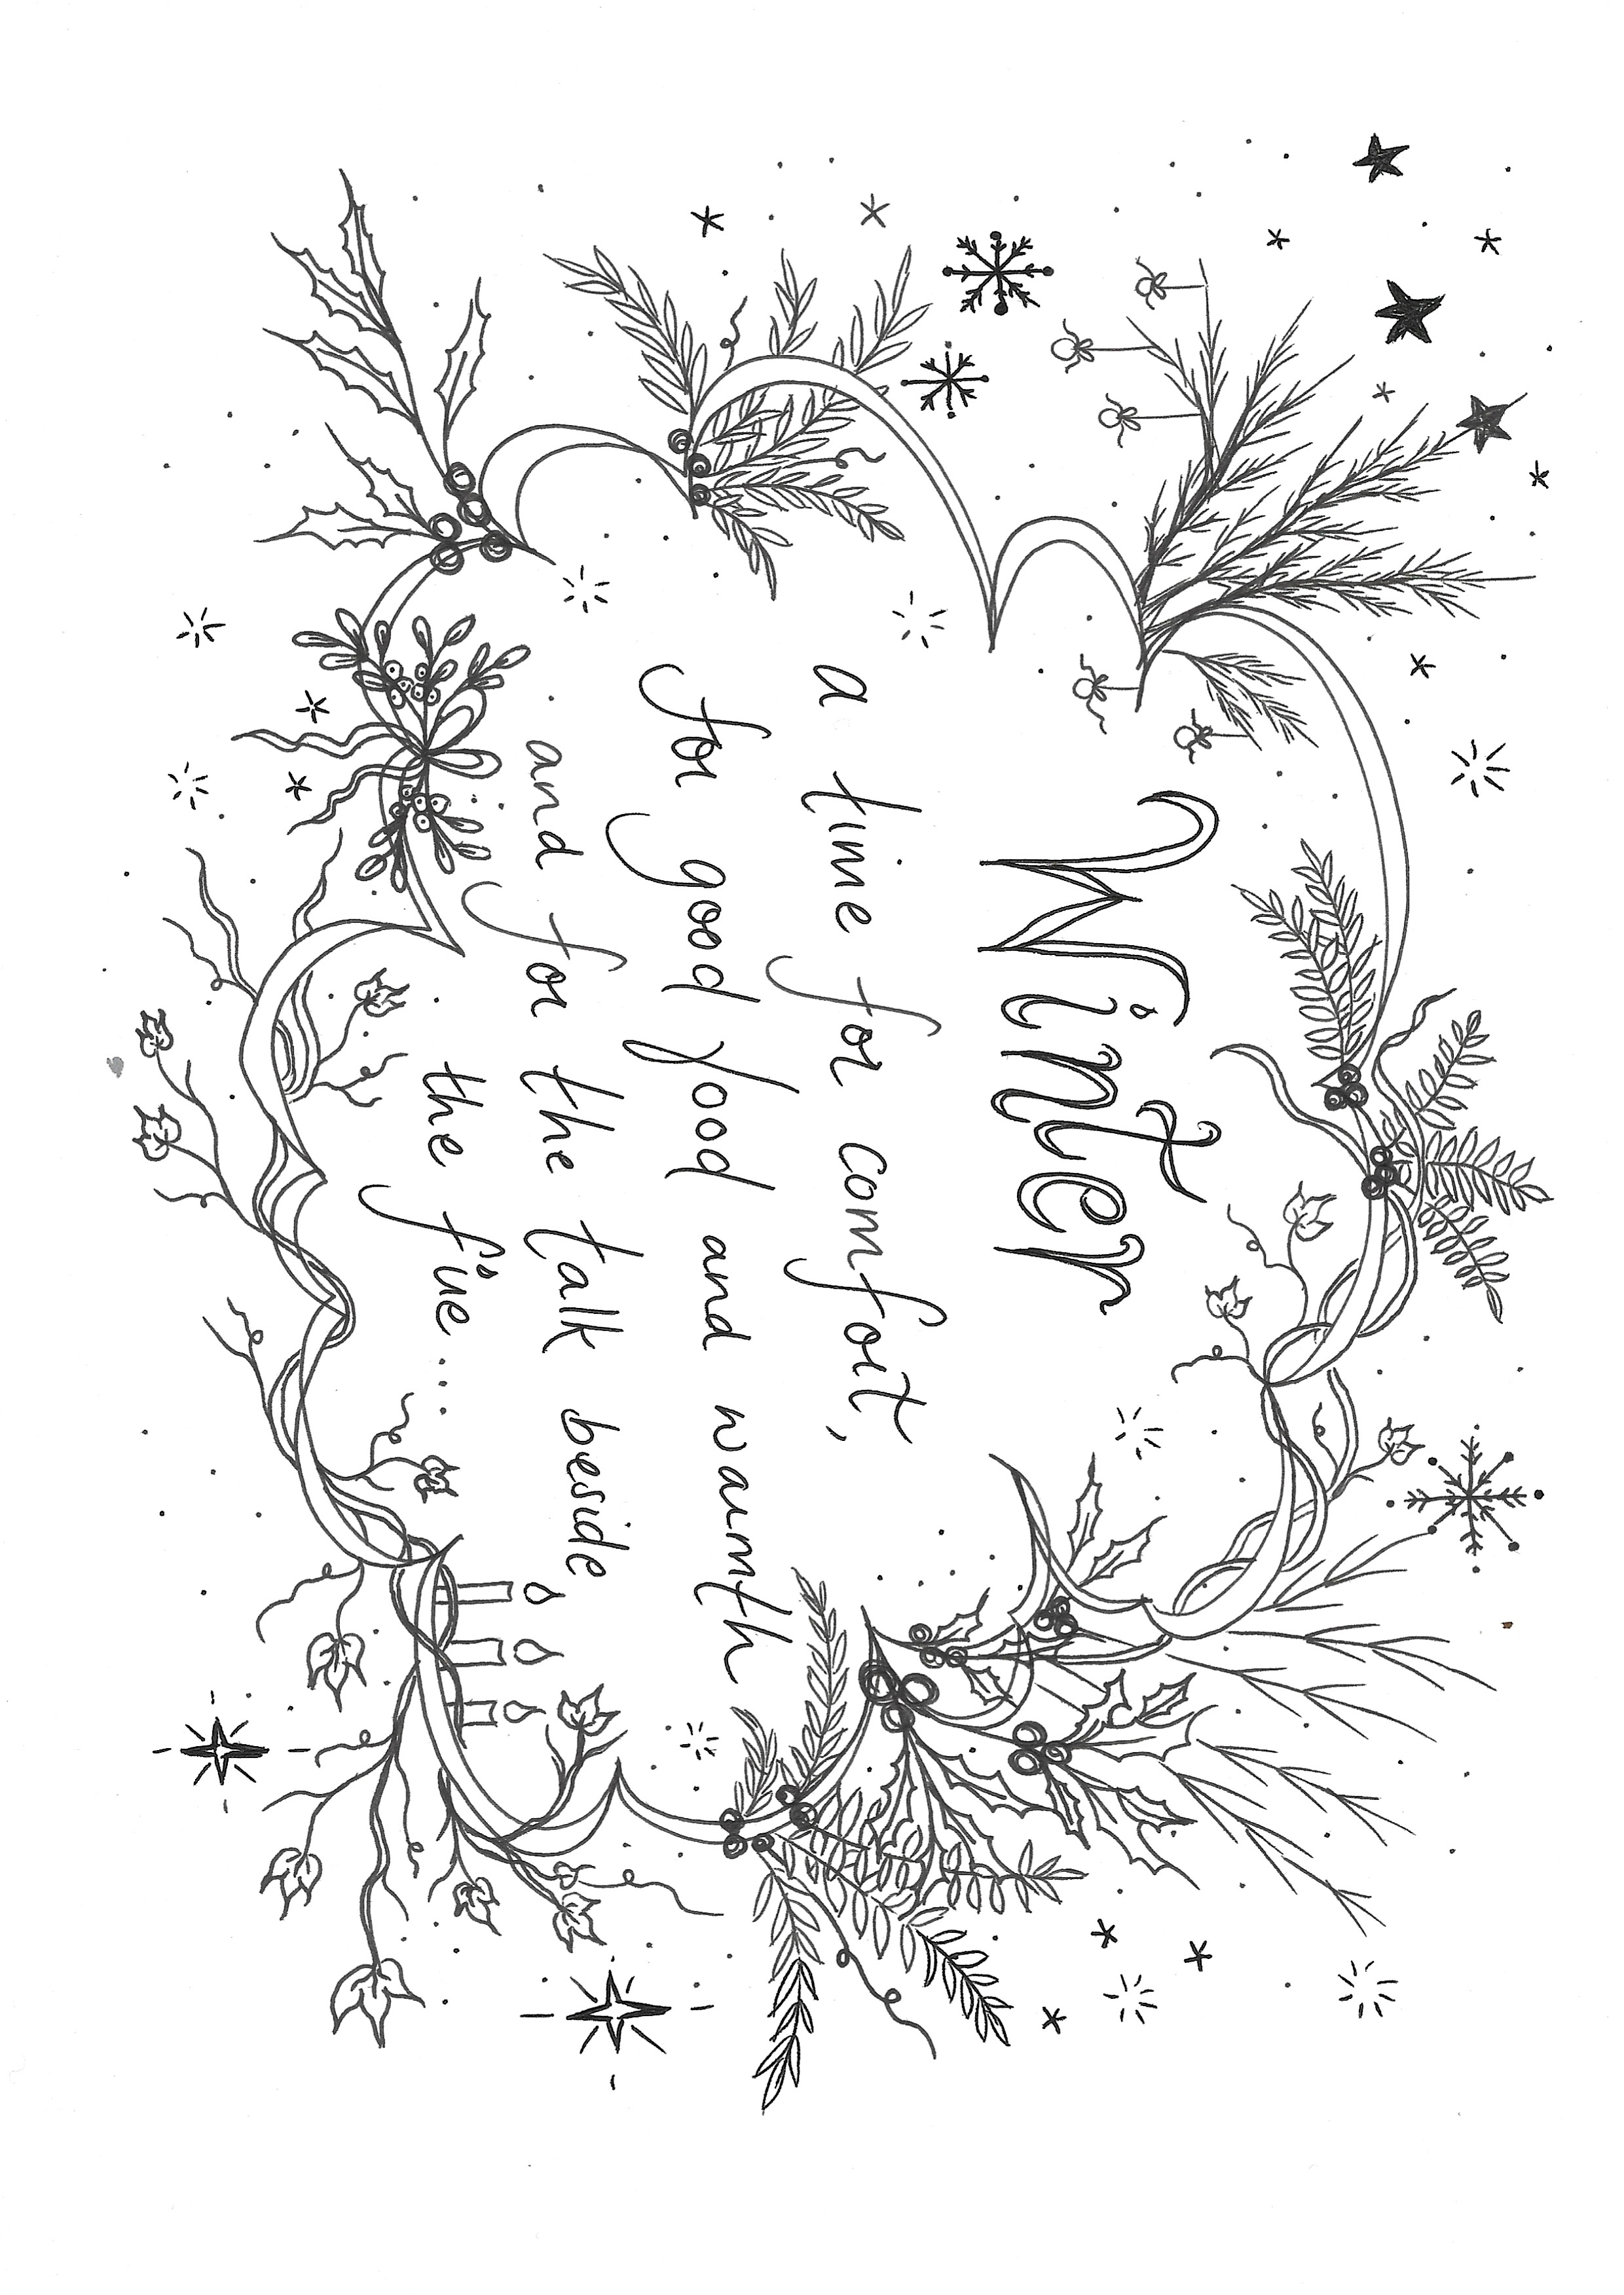 Winter
a time for comfort,
for good food and warmth
and for the talk beside
the fire...